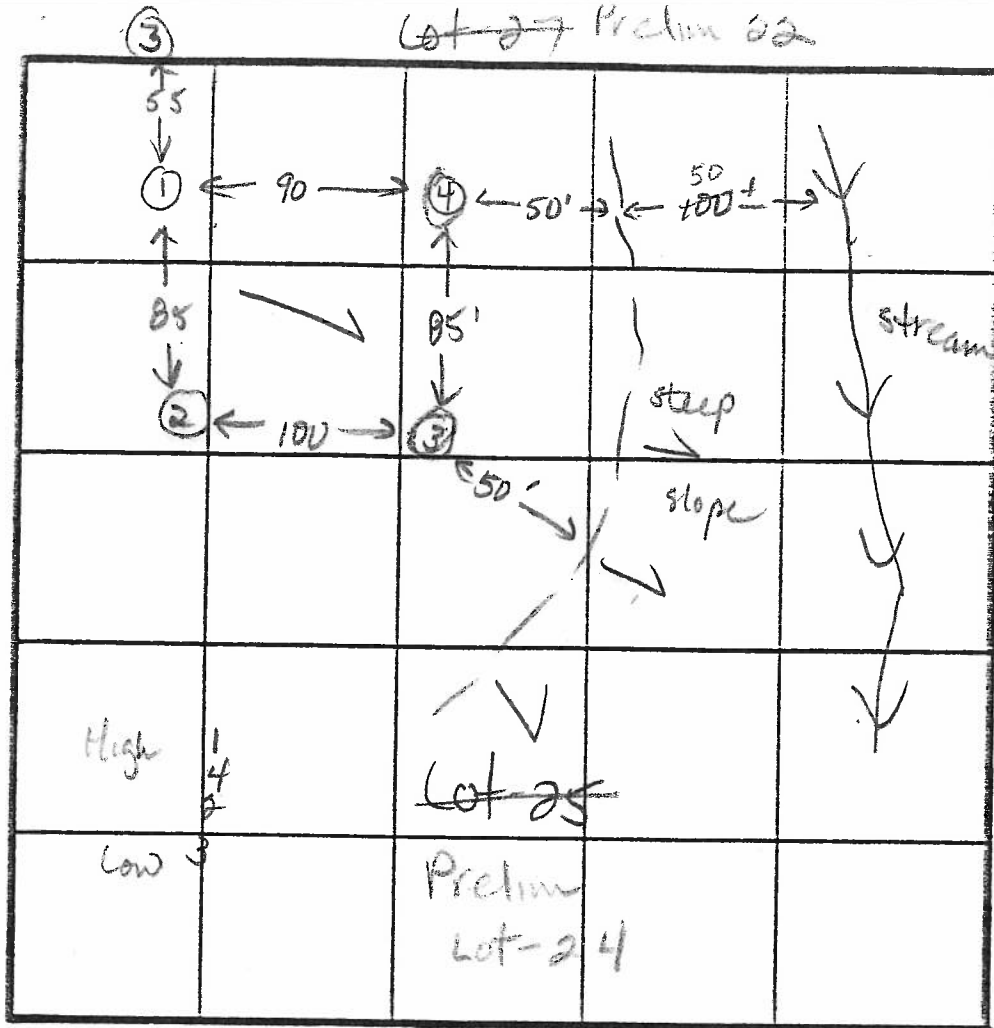 ③ Lot 27 Prelim 22
55
① 90 ④ 50' 50
100 ±
85 85' stream
② 100 ③ steep
50' slope
High 1
4
2
Lot 25
Low 3
Prelim
Lot-24